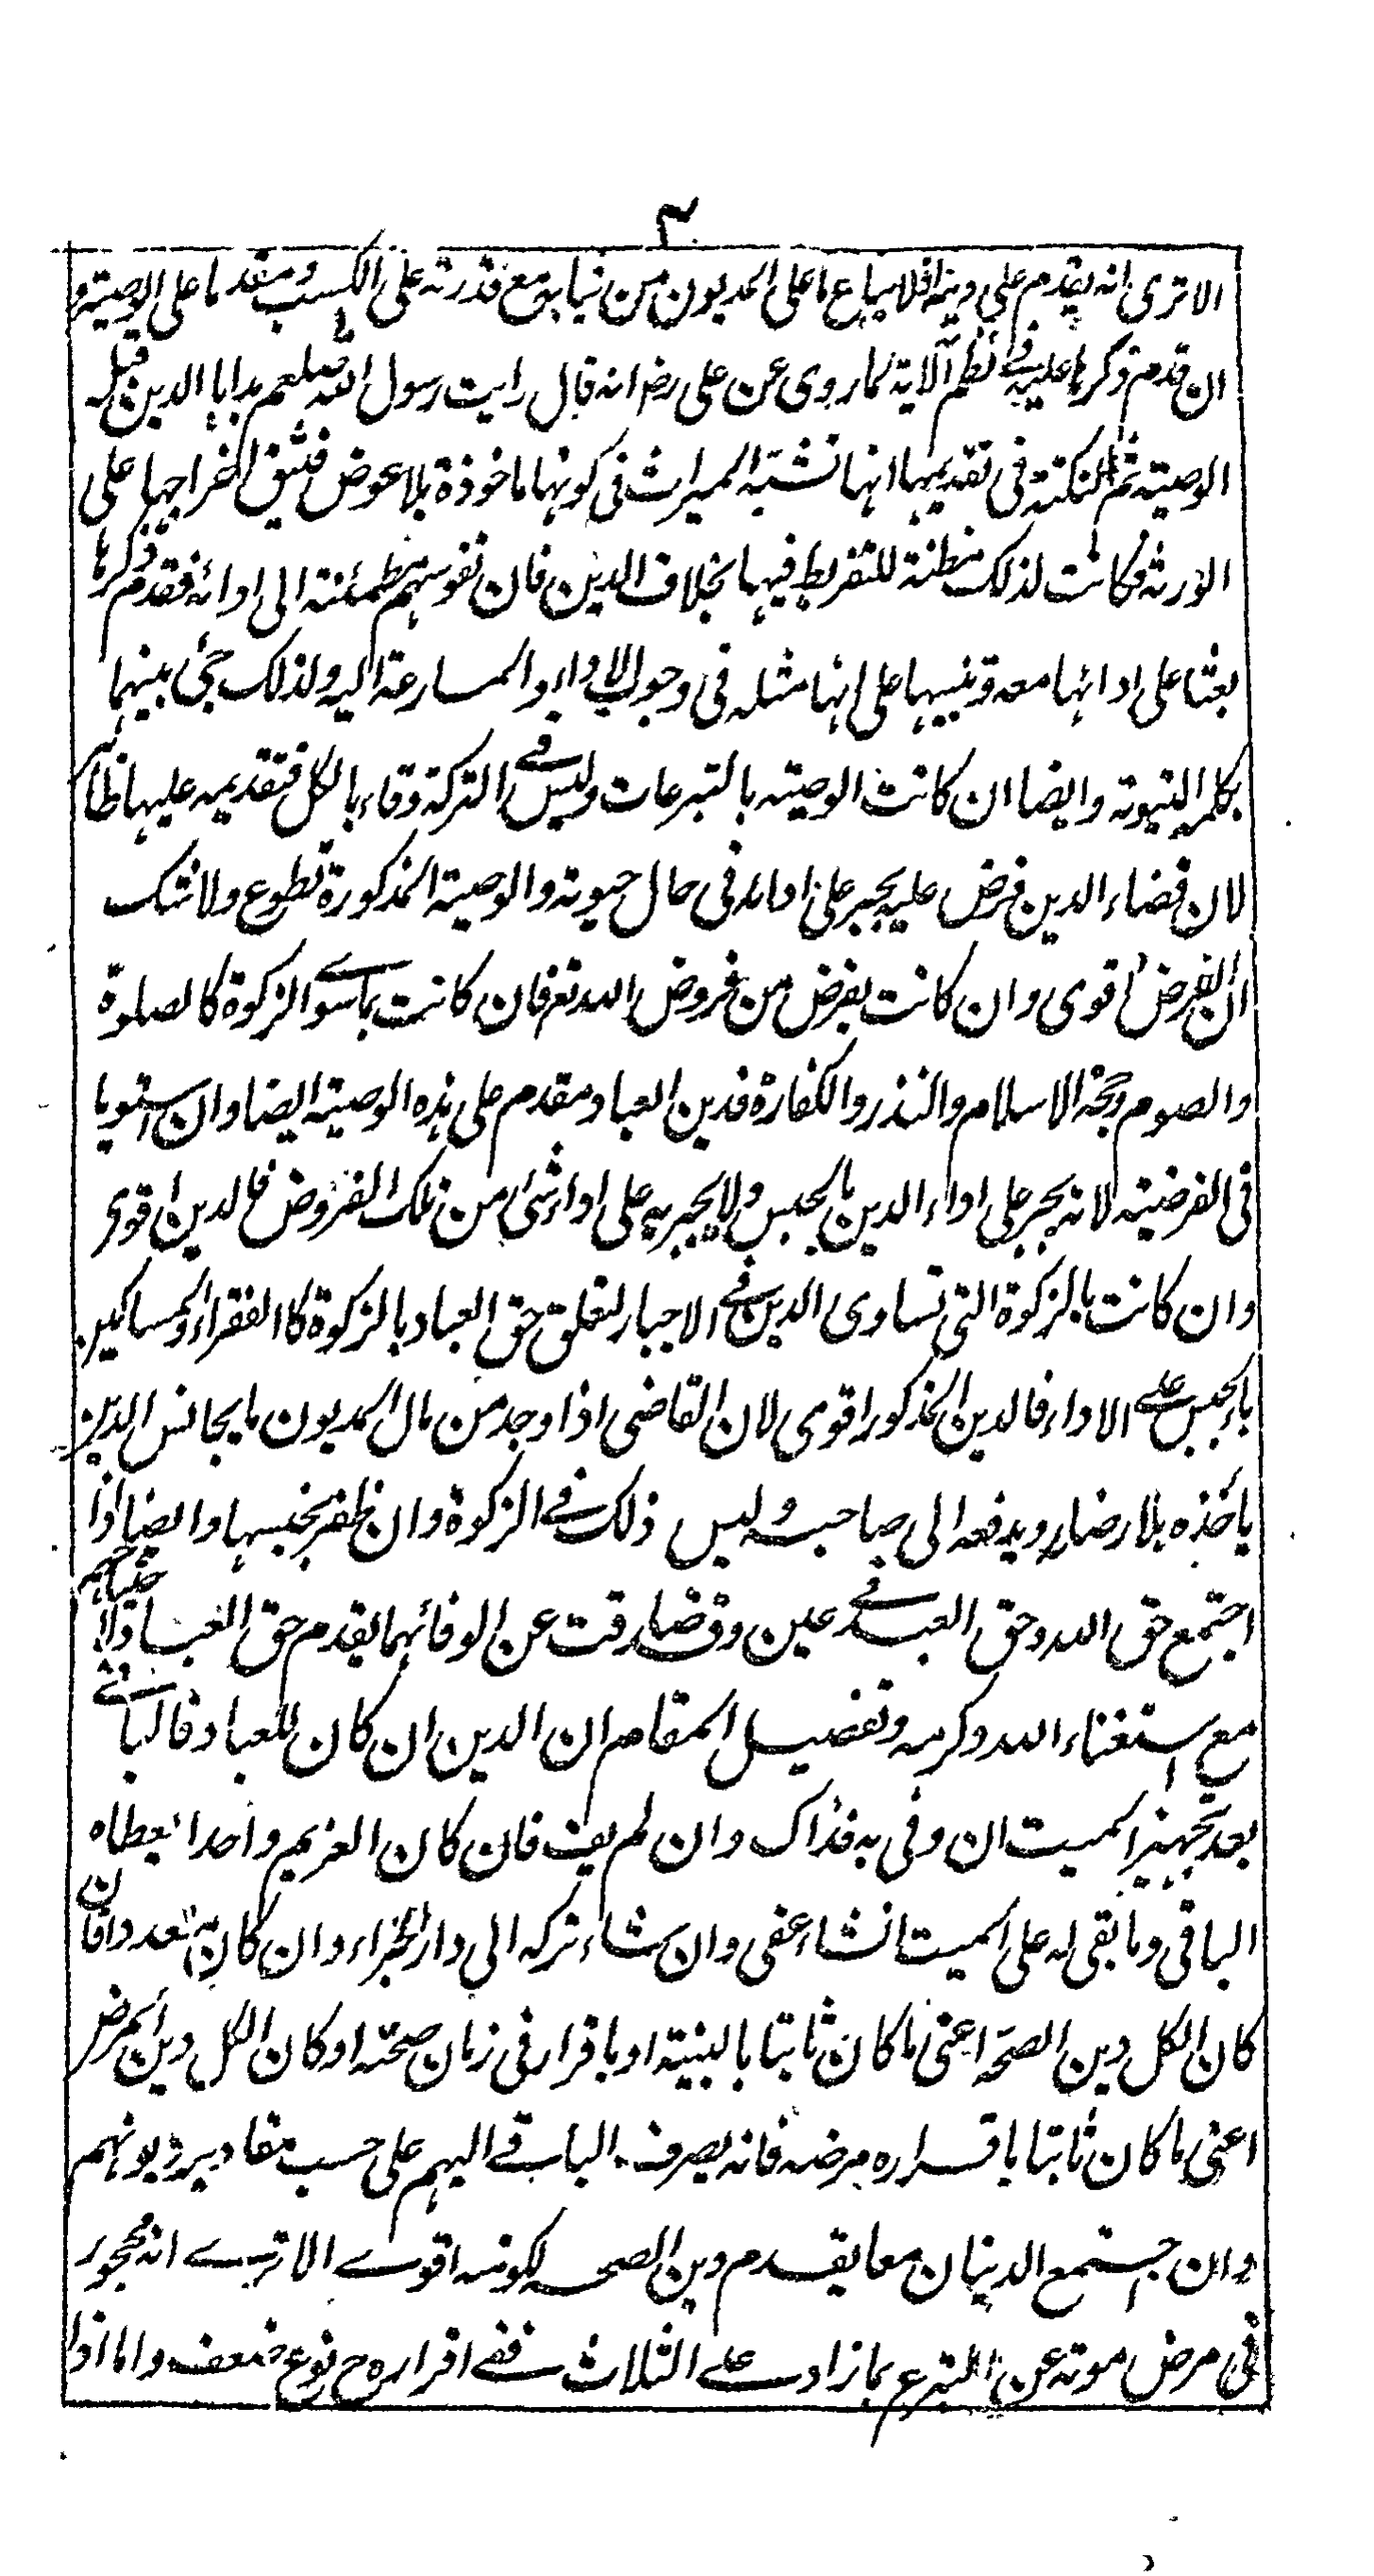 ٣
الا تری انه یقدم علی دینه اذ لا یباع ما علی المدیون من ثیابه مع قدرته علی الکسب ومقدما علی الوصیته و
ان قدم ذکرها علیه فے نظم آلایة کما روی عن علی رضـ انه قال رایت رسول الله صلعم بدا بالدین قبل
الوصیته ثم النکتة فی تقدیمها انها تشبه المیراث فی کونها ماخوذة بلا عوض فیشق اخراجها علی
الورثة فکانت لذلک مظنة للتفریط فیها بخلاف الدین فان نفوسهم مطمئنة الی ادائه فقدم ذکرها
بعثا علی ادائها معه وتنبیها علی انها مثله فی وجوب الاداء والمسارعة الیه ولذلک جئ بینهما
بکلمة التسویة وایضا ان کانت الوصیته بالتبرعات ولیس فے الترکة وفاء بالکل فتقدیمه علیها ظاهر
لان قضاء الدین فرض علیه یجبر علی ادائه فی حال حیوته والوصیة المذکورة تطوع ولا شک
ان الفرض اقوی وان کانت بفرض من فروض الله تعـ فان کانت بما سوے الزکوة کالصلوة
والصوم وحجة الاسلام والنذر والکفارة فدین العباد مقدم علی هذه الوصیته ایضا وان استویا
فی الفرضیته لانه یجبر علی اداء الدین بالحبس ولا یجبر به علی اداء شئ من تلک الفروض فالدین اقوی
وان کانت بالزکوة التی تساوی الدین فے الاجبار لتعلق حق العباد بالزکوة کا الفقراء والمساکین
بالحبس علے الاداء فالدین المذکور اقوی لان القاضی اذا وجد من مال المدیون ما یجانس الدین
یاخذه بلا رضاه ویدفعه الی صاحبه ولیس ذلک فے الزکوة وان ظفر بجنسها وایضا اذا
اجتمع حق الله وحق العبد فے عین وقد ضاقت عن الوفاء بهما یقدم حق العباد لاحتیاجهم
مع استغناء الله وکرمه وتفضیل المقام ان الدین ان کان للعباد فالباقے
بعد تجهیز المیت ان وفی به فذاک وان لم یف فان کان الغریم واحدا یعطاه
الباقی وما بقی له علی المیت انشاء عفی وان شاء ترکه الی دار الجزاء وان کان متعددا فان
کان الکل دین الصحة اعنی ما کان ثابتا بالبینة او باقرار فی زمان صحته او کان الکل دین المرض
اعنی ما کان ثابتا باقراره مرضه فانه یصرف الباقے الیهم علی حسب مقادیر دیونهم
وان اجتمع الدینان معا یقدم دین الصحة لکونه اقوے الا ترے انه محجور
فی مرض موته عن التبرع بما زاد علے الثلاث ففے اقراره ح نوع ضعف واما اذا